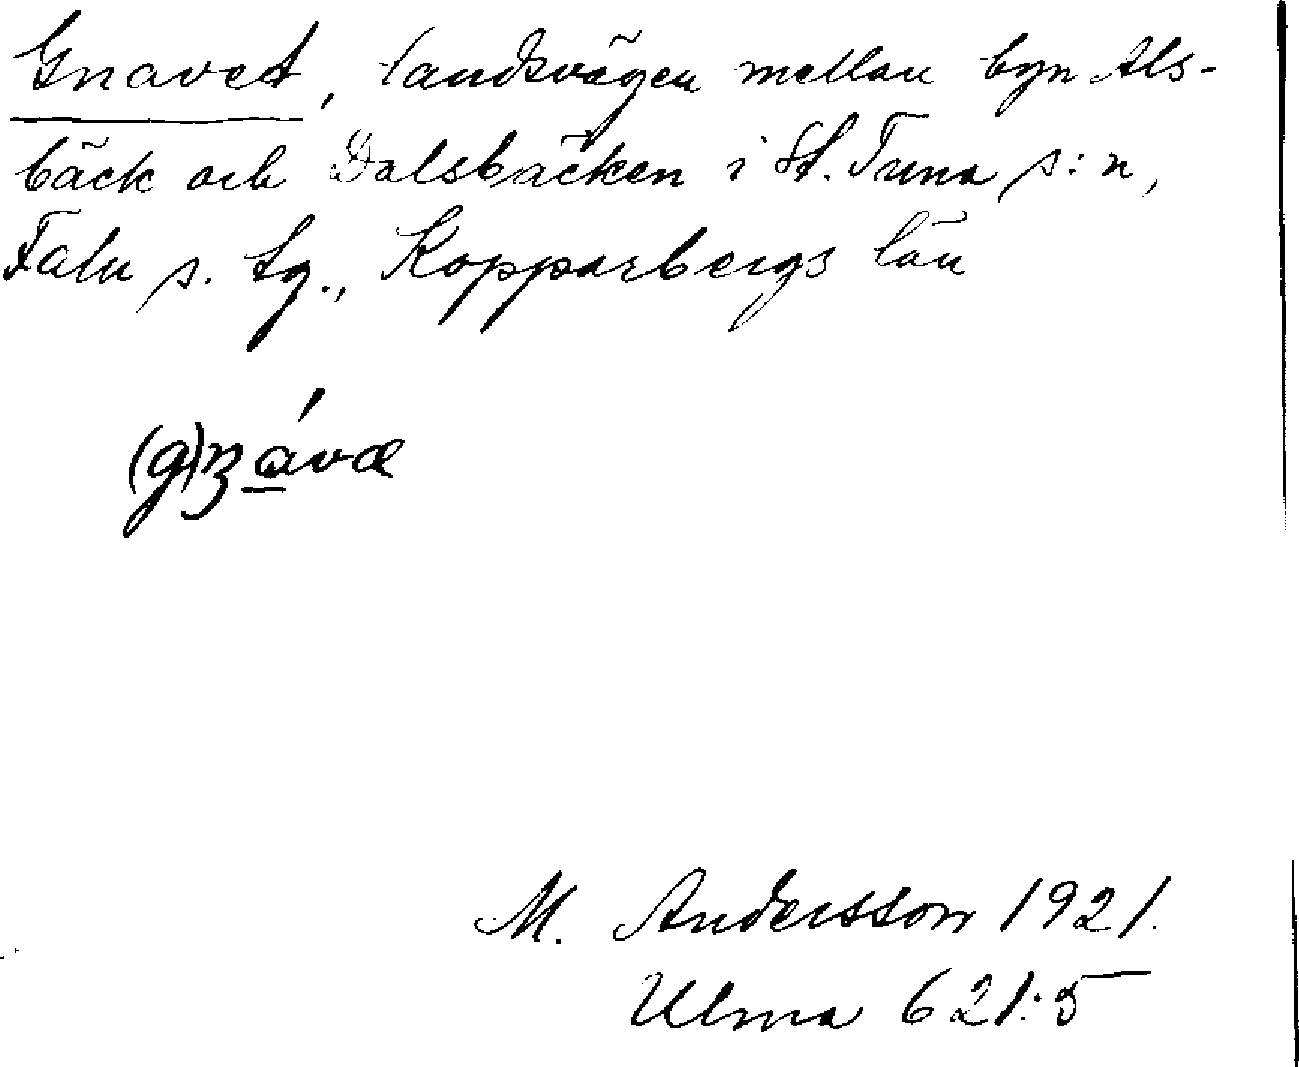 Gnavet, landsvägen mellan byn Als-
bäck och Dalsbäcken i St. Tuna s:n,
Falu s. tg., Kopparbergs län
(g)nává
M. Andersson 1921.
Ulma 621:5